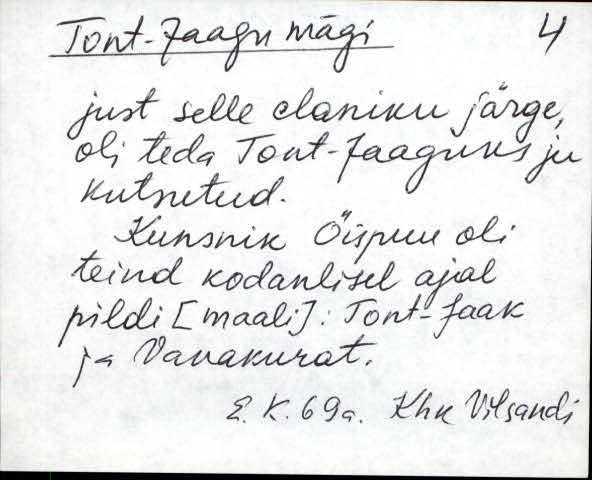 Tont-Jaagu mägi 4
just selle elaniku järge,
oli teda Tont-Jaaguks ju
kutsutud.
Kunsnik Õispuu oli
teind kodanlisel ajal
pildi [maali]: Tont-Jaak
ja Vanakurat.
E. K. 69a. Khk Vilsandi